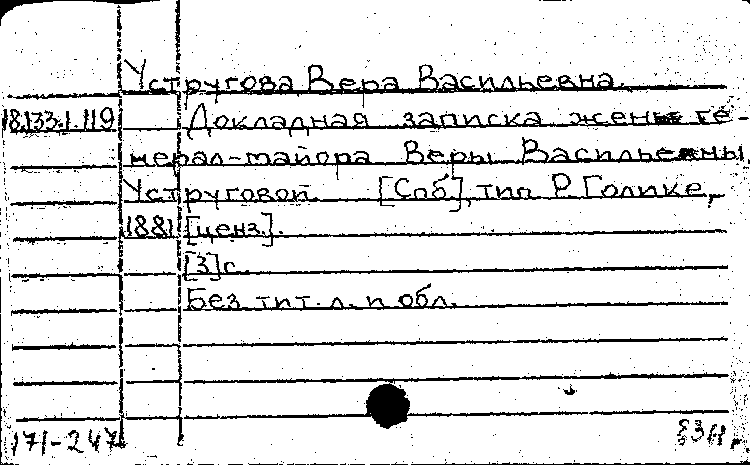 Устругова Вера Васильевна.
18.133.1.119 Докладная записка жены ге-
нерал-майора Веры Васильевны
Уструговой. [Спб], тип Р. Голике,
1881 [ценз.].
[3] с.
Без тит. л. и обл.
171-247